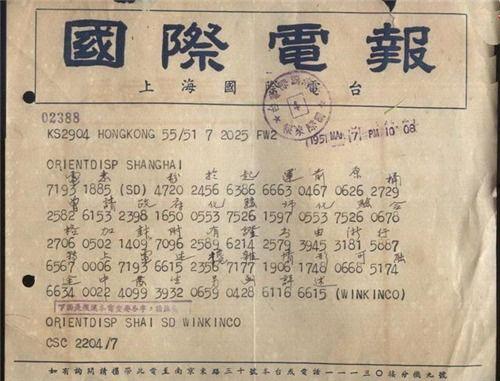 國際電報
上海國際電台
02388
KS2904 HONGKONG 55/51 7 2025 FW2
1951 MAY 7 PM 10 08
ORIENTDISP SHANGHAI
電 悉 起 運 前 原
7193 1885 (SD) 4720 2456 6386 6663 0467 0626 2729
曾 請 政 府 化 驗 師 化 驗 合
2582 6153 2398 1650 0553 7526 1597 0553 7526 0678
格 加 封 附 有 證 書 由 浙 行
2706 0502 1409 7096 2589 6214 2579 3945 3181 5887
上 電 述 雜 情 形 可 融
6567 0006 7193 6615 2356 7177 1906 1748 0668 5174
中 生 詳 述
6634 0022 4099 3932 0659 0428 6116 6615 (WINKINCO)
ORIENTDISP SHAI SD WINKINCO
CSC 2204/7
如有詢問請攜帶此電至南京東路三十號本台或電話一一一三〇接分機九號